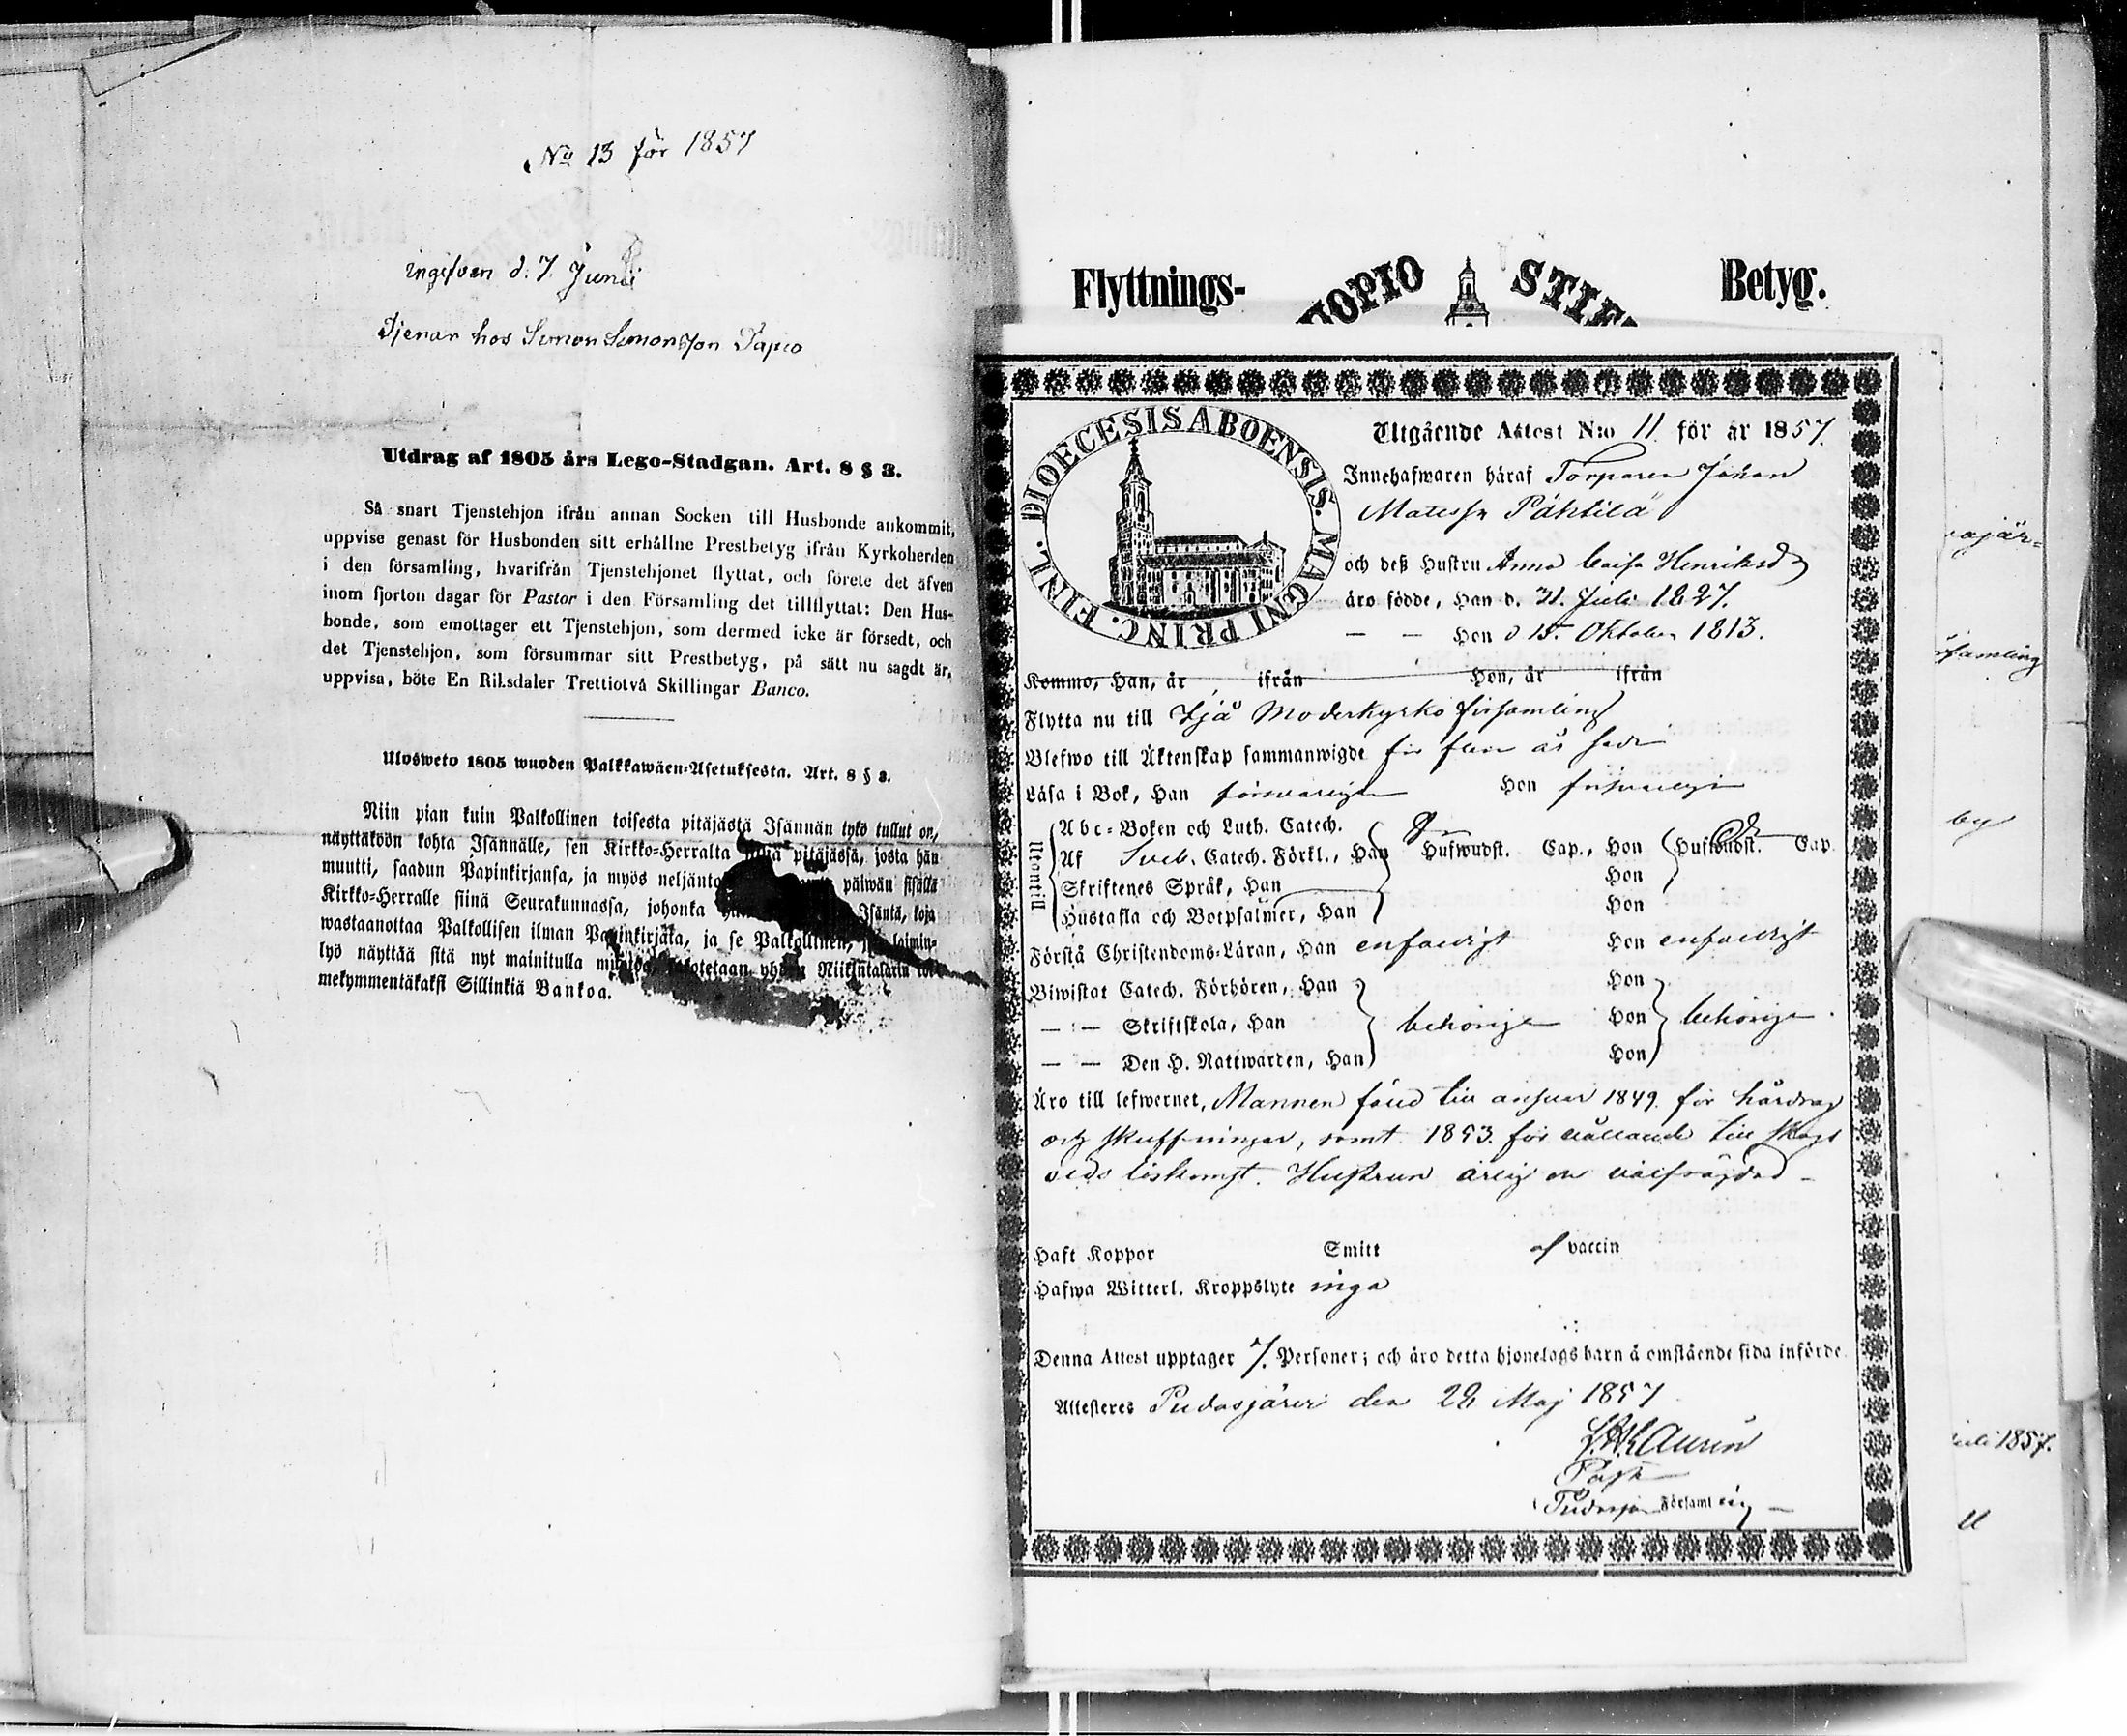 No 13 för 1857
ingifven d. 7 Juni
Tjenar hos Simon Simonsson Tapio
Utdrag af 1805 års Lego-Stadgan. Art. 8 § 3.
Så snart Tjenstehjon ifrån annan Socken till Husbonde ankommit,
uppvise genast för Husbonden sitt erhållne Prestbetyg ifrån Kyrkoherden
i den församling, hvarifrån Tjenstehjonet flyttat, och förete det äfven
inom fjorton dagar för Pastor i den Församling det tillflyttat: Den Hus-
bonde, som emottager ett Tjenstehjon, som dermed icke är försedt, och
det Tjenstehjon, som försummar sitt Prestbetyg, på sätt nu sagdt är,
uppvisa, böte En Riksdaler Trettiotvå Skillingar Banco.
Ulosweto 1805 wuoden Palkkawäen-Asetuksesta. Art. 8 § 3.
Niin pian kuin Palkollinen toisesta pitäjästä Isännän tykö tullut on,
näyttäköön kohta Isännälle, sen Kirkko-Herralta siinä pitäjässä, josta hän
muutti, saadun Papinkirjansa, ja myös neljänto päiwän sisällä
Kirkko-Herralle siinä Seurakunnassa, johonka Isäntä, koja
wastaanottaa Palkollisen ilman Papinkirjata, ja se Palkollinen, laimin-
lyö näyttää sitä nyt mainitulla sakotetaan yhden Riiksntalarin
mekymmentäkaksi Sillinkiä Bankoa.
Flyttnings- UOPIO STIF Betyg.
DIOECESIS ABOENSIS. MAGNI PRINC. FINL.
Utgående Attest N:o 11 för år 1857.
Innehafwaren häraf Torparen Johan
Matsson Pähtilä
och deß Hustru Anna Caisa Henriksdr
äro födde, Han d. 31. Juli 1827.
— — Hon d 15. Oktober 1813.
Kommo, Han, år ifrån Hon, år ifrån
Flytta nu till Ijå Moderkyrko församling
Blefwo till Äktenskap sammanwigde för flera år sedan
Läsa i Bok, Han försvarligen Hon försvarligen
Utantill
Abc-Boken och Luth. Catech.
Af Sveb. Catech. Förkl., Han Hufwudst. Cap., Hon Hufwudst. Cap.
Skriftenes Språk, Han Hon
Hustafla och Botpsalmer, Han Hon
Förstå Christendoms-Läran, Han enfaldigt Hon enfaldigt
Biwistat Catech. Förhören, Han Hon
— — Skriftskola, Han behörigen Hon behörigen
— — Den H. Nattwarden, Han Hon
Äro till lefwernet, Mannen fäld till ansvar 1849. för hårdrag
och skuffningar, samt 1853. för vållande till skogs
elds löskomst. Hustrun ärlig och välfrägdad
Haft Koppor Smitt af vaccin
Hafwa Witterl. Kroppslyte inga
Denna Attest upptager 7. Personer; och äro detta hjonelags barn å omstående sida införde.
Attesteres Pudasjärvi den 28 Maj 1857
Past.
Pudasj Församling
ajär-
församling
1857.